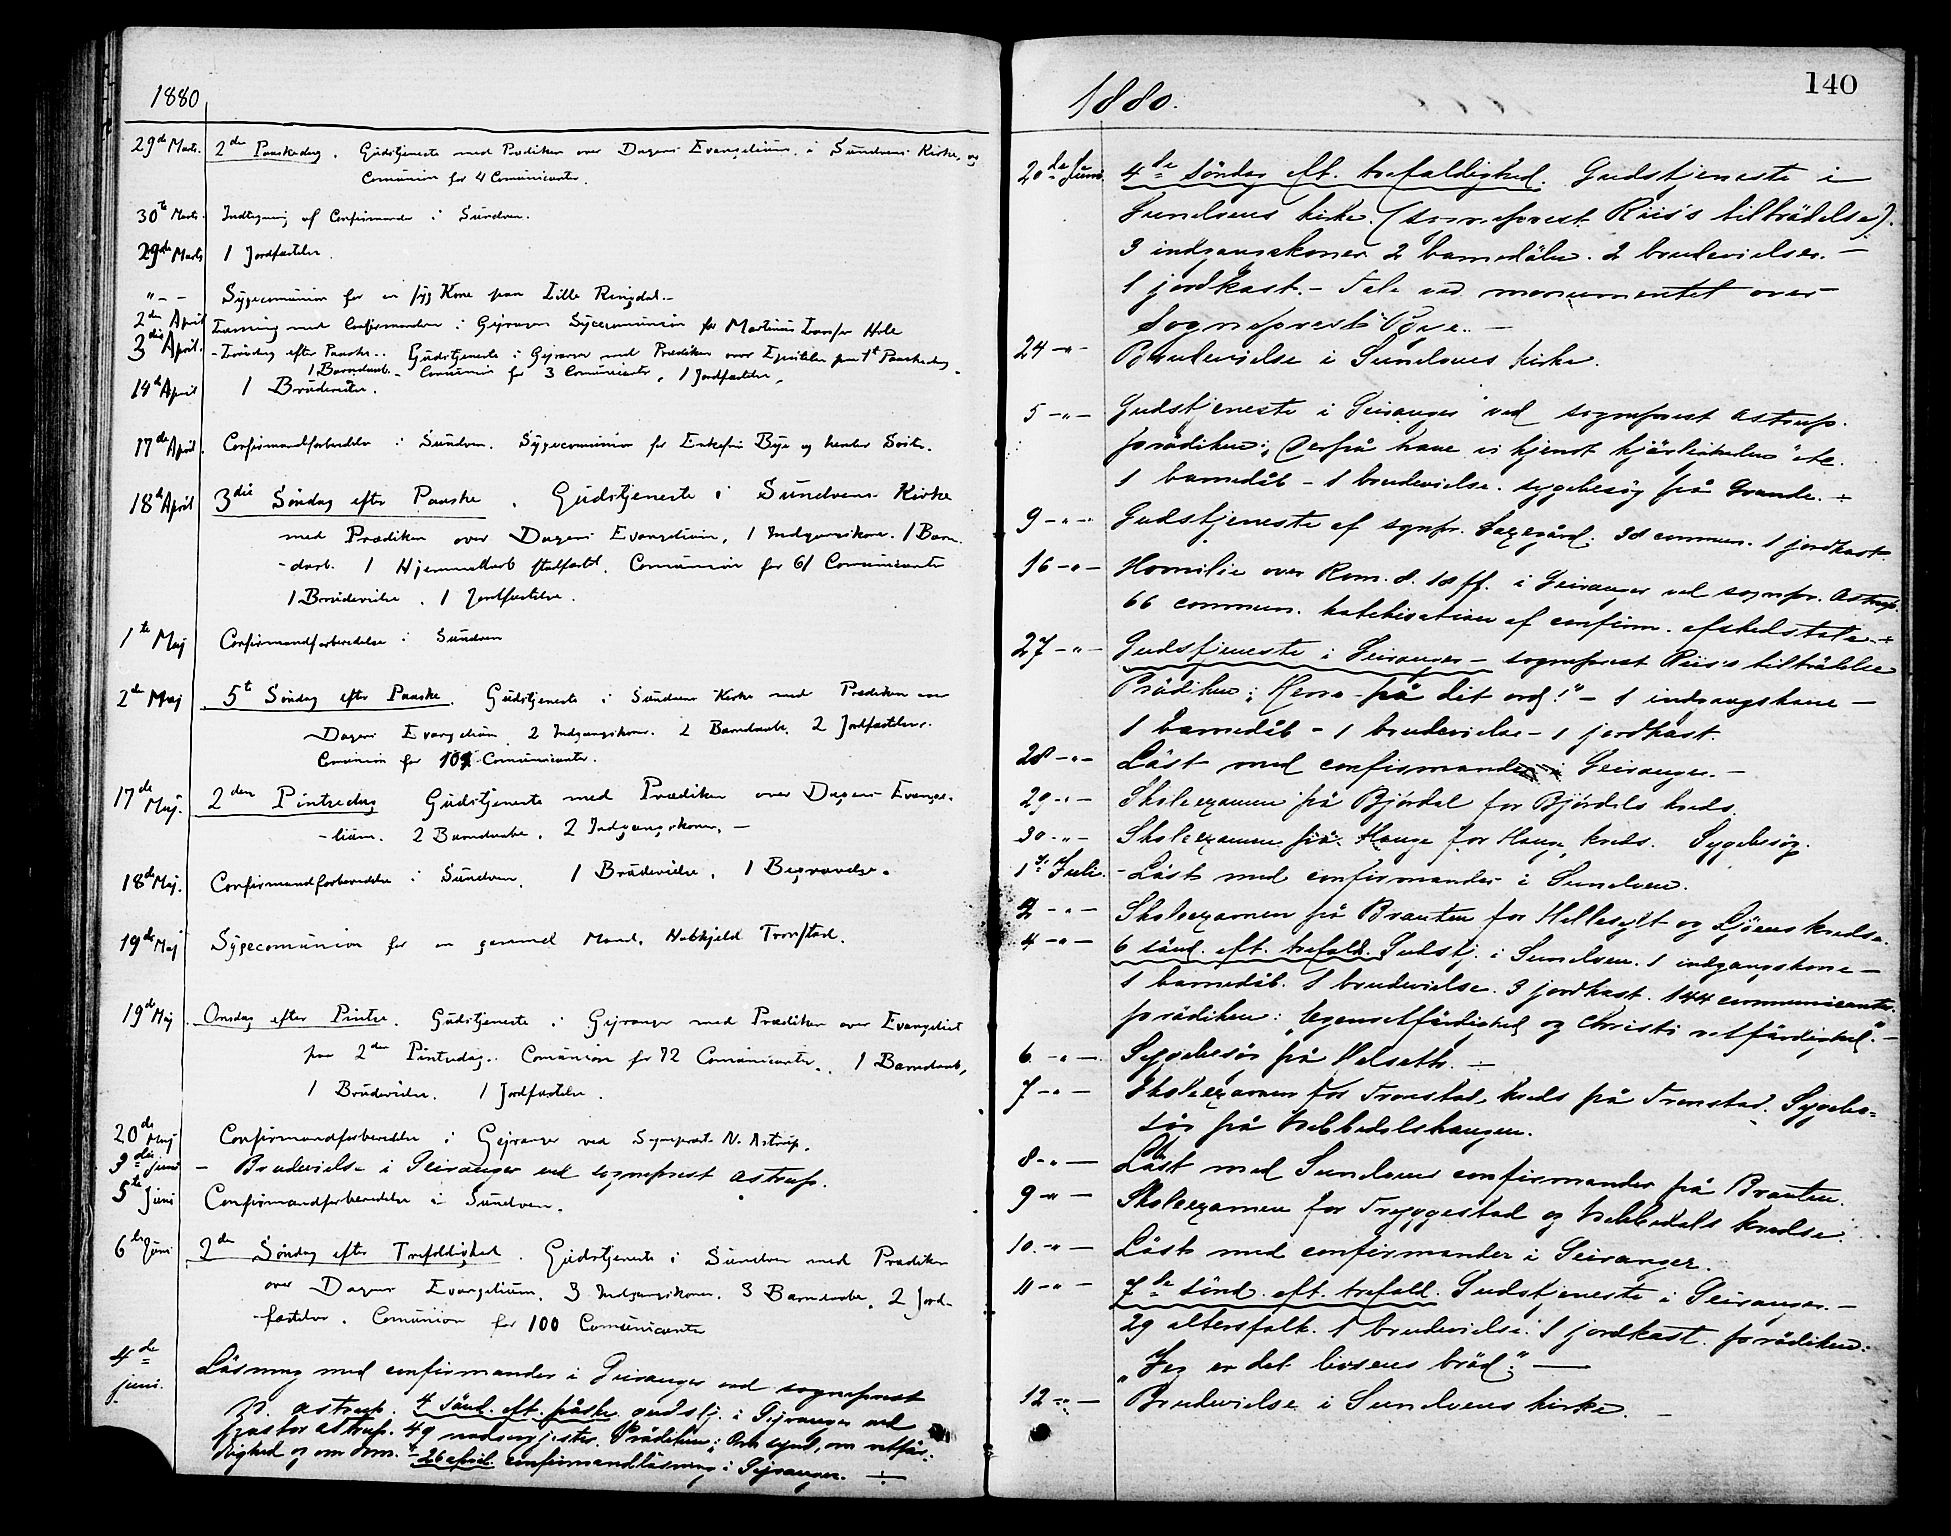 1880
29de Marts. 2den Paaskedag. Gudstjeneste med Prædiken over Dagens Evangelium i Sundvens Kirke, og
Comunion for 4 Comunicanter.
30te Marts. Indtegning af Confirmander i Sundven.
29de Marts 1 Jordfæstelse.
" - - Sygecomunion for en syg Kone paa Lille Ringdal.-
2den April Læsning med Confirmanderne i Gejranger Sygecomunion for Martinus Larsen Hole
3die April. - Løverdag efter Paaske.. Gudstjeneste i Gejranger med Prædiken over Epistelen paa 1st Paaskedag.
1 Barnedaab. - Comunion for 3 Comunicanter, 1 Jordfæstelse.
14de April 1 Brudevielse.
17de April. Confirmandforberedelse i Sundven. Sygecomunion for Enkefru Bye og hendes Søster.
18de April 3die Søndag efter Paaske. Gudstjeneste i Sundvens Kirke
med Prædiken over Dagens Evangelium, 1 Indgangskone. 1 Barne
-daab. 1 Hjemmedaab stadfæstet. Comunion for 61 Comunicanter
1 Brudevielse. 1 Jordfæstelse.
1te Maj Confirmandforberedelse i Sundven
2den Maj 5te Søndag efter Paaske. Gudstjeneste i Sundvens Kirke med Prædiken over
Dagens Evangelium 2 Indgangskoner. 2 Barnedaabe. 2 Jordfæstelser.
Comunion for Comunicanter.
17de Maj. 2den Pintsedag Gudstjeneste med Prædiken over Dagens Evange-
-lium. 2 Barnedaabe. 2 Indgangskoner. -
18de Maj. Confirmandforberedelse i Sundven. 1 Brudevielse. 1 Begravelse.
19de Maj Sygecomunion for en gammel Mand, Tronstad.
19de Maj Onsdag efter Pintse. Gudstjeneste i Gejranger med Prædiken over Evangeliet
paa 2den Pintsedag. Comunion for 72 Comunicanter. 1 Barnedaab,
1 Brudevielse. 1 Jordfæstelse.
20de Maj Confirmandforberedelse i Gejranger ved Sognepræst N. Astrup.
3die Juni - Brudevielse i Geiranger ved sognepræst Astrup.
5te Juni Confirmandforberedelse i Sundven.
6te Juni 2den Søndag efter Trefoldighed. Gudstjeneste i Sundven med Prædiken
over Dagens Evangelium. 3 Indgangskoner. 3 Barnedaabe. 2 Jord-
fæstelser. Comunion for 100 Comunicanter
4de juni. Läsning med confirmander i Geiranger ved sognepræst
N. Astrup. 4 sönd. eft. påske gudstj. i Gejranger ved
pastor Astrup. 49 nadvergjester. Prädiken: Om synd, om retfär-
dighed og om dom. - 26 april confirmandläsning i Gejranger. -
1880. 140
20de Juni. 4de söndag eft. trefaldighed. Gudstjeneste i
Sundvens kirke. (sognepræst Riis's tilträdelse).
3 indgangskoner 2 barnedåbe. 2 brudevielser. -
1 jordkast. - Tale ved monumentet over
Sognepræst Bye. -
24 -"- Brudevielse i Sundvens kirke.
5 -"- Gudstjeneste i Geiranger ved sognepræst Astrup.
prädiken: "Derpå have vi kjendt kjärligheden" etc.
1 barnedåb - 1 brudevielse. sygebesög på Grande. -
9 -"- Gudstjeneste af sognpr. 38 commun. 1 jordkast
16 -"- Homilie over Rom. 8. 18 ff. i Geiranger ved sognpr. Astrup.
66 commun. katekisation af confirm. afskedstale. -
27 -"- Gudstjeneste i Geiranger - sognepræst Riis's tilträdelse
Prädiken: "Herre - på dit ord!" - 1 indgangskone -
1 barnedåb - 1 brudevielse - 1 jordkast.
28 -"- Läst med confirmander i Geiranger. -
29 -"- Skoleexamen på Björdal for Björdals kreds.
30 -"- Skoleexamen på Hauge for Hauge kreds. Sygebesög.
1ste Juli. - Läst med confirmander i Sundven.
2 -"- Skoleexamen på Brauten for Hellesylt og Ljöens kredse.
4 -"- 6 sönd. eft. trefold. Gudstj. i Sundven. 1 indgangskone -
1 barnedåb. 1 brudevielse. 3 jordkast. 144 communicanter.
prädiken: "Egenretfärdighed og Christi retfärdighed." -
6 -"- Sygebesög på Helseth. -
7 -"- Skoleexamen for Tronstad kreds på Tronstad. Sygebe-
sög på Nebbedalshaugen.
8 -"- Läst med Sundvens confirmander på Brauten.
9 -"- Skoleexamen for Tryggestad og Nebbedals kredse.
10. -"- Läst med confirmander i Geiranger.
11 -"- 7de sönd. eft. trefold. Gudstjeneste i Geiranger. -
29 altersfolk. 1 brudevielse. 1 jordkast. prädiken:
"Jeg er det livsens bröd". -
12 -"- Brudevielse i Sundvens kirke. -